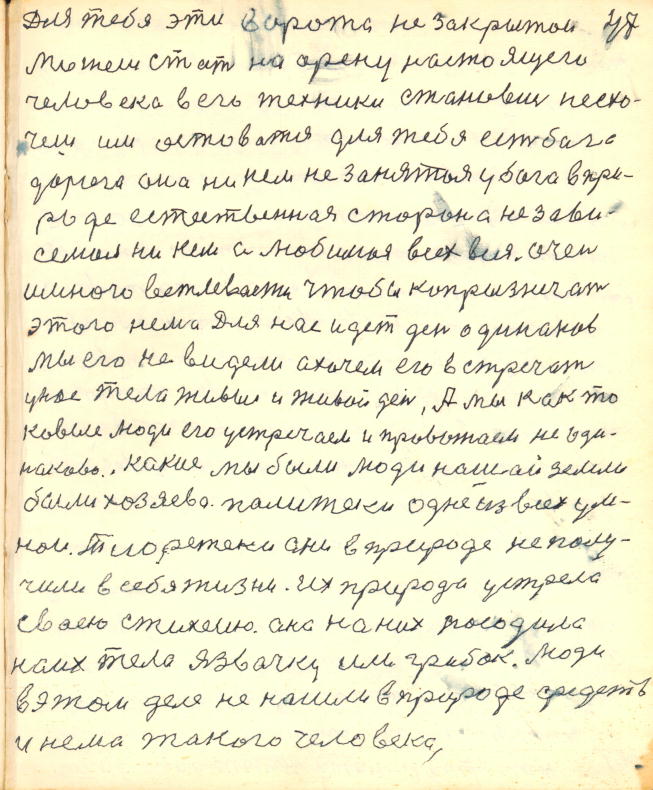 Для тебя эти ворота не закрытои 47
Можеш стат на арену настоящего
человека в его техники становиш несхо-
чеш им оставатя для тебя ест бага
дарога она ни кем не занятоя у бога в при-
роде естественная сторона не зави-
семая ни кем а любимоя всех вия. очен
многа чтобы копризничат
этого нема Для нас идет ден одинаков
Мы его не видели а хочем его встречат
унас тела живыи и живой ден, А мы как то
ковыие люди его устречаем и провожаем не оди-
наково.. Какие мы были люди нашай земли
были хозяева. палитеки одне из всех ум-
нои. Тиоретеки они в природе не полу-
чили в себя жизни. Их природа устрела
своею стихеию. ана на них посодила
на их тела язвачку или грибок. Люди
в этом деле не нашли в природе средств
и нема такого человека,